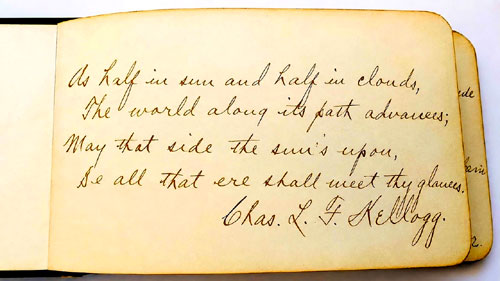 As half in sun and half in clouds,
The world along its path advances;
May that side the sun's upon,
Be all that ere shall meet thy glances.
Chas. L. F. Kellogg.
2.